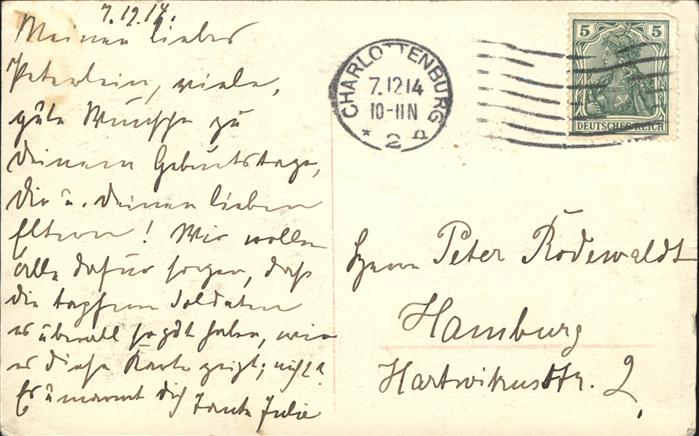 7.12.14.
Meinen lieben
Peterlein, viele,
gute Wünsche zu
deinem Geburtstage,
dir u. deinen lieben
Eltern! Wir wollen
alle dafür sorgen, daß
die tapfern Soldaten
es überall haben, wie
es diese Karte zeigt; nicht?
Es umarmt dich Tante Julie
CHARLOTTENBURG
7.12.14
10-11N
* 2
5 5
DEUTSCHES REICH
Herrn Peter Rodewaldt
Hamburg
Hartwikusstr. 2.